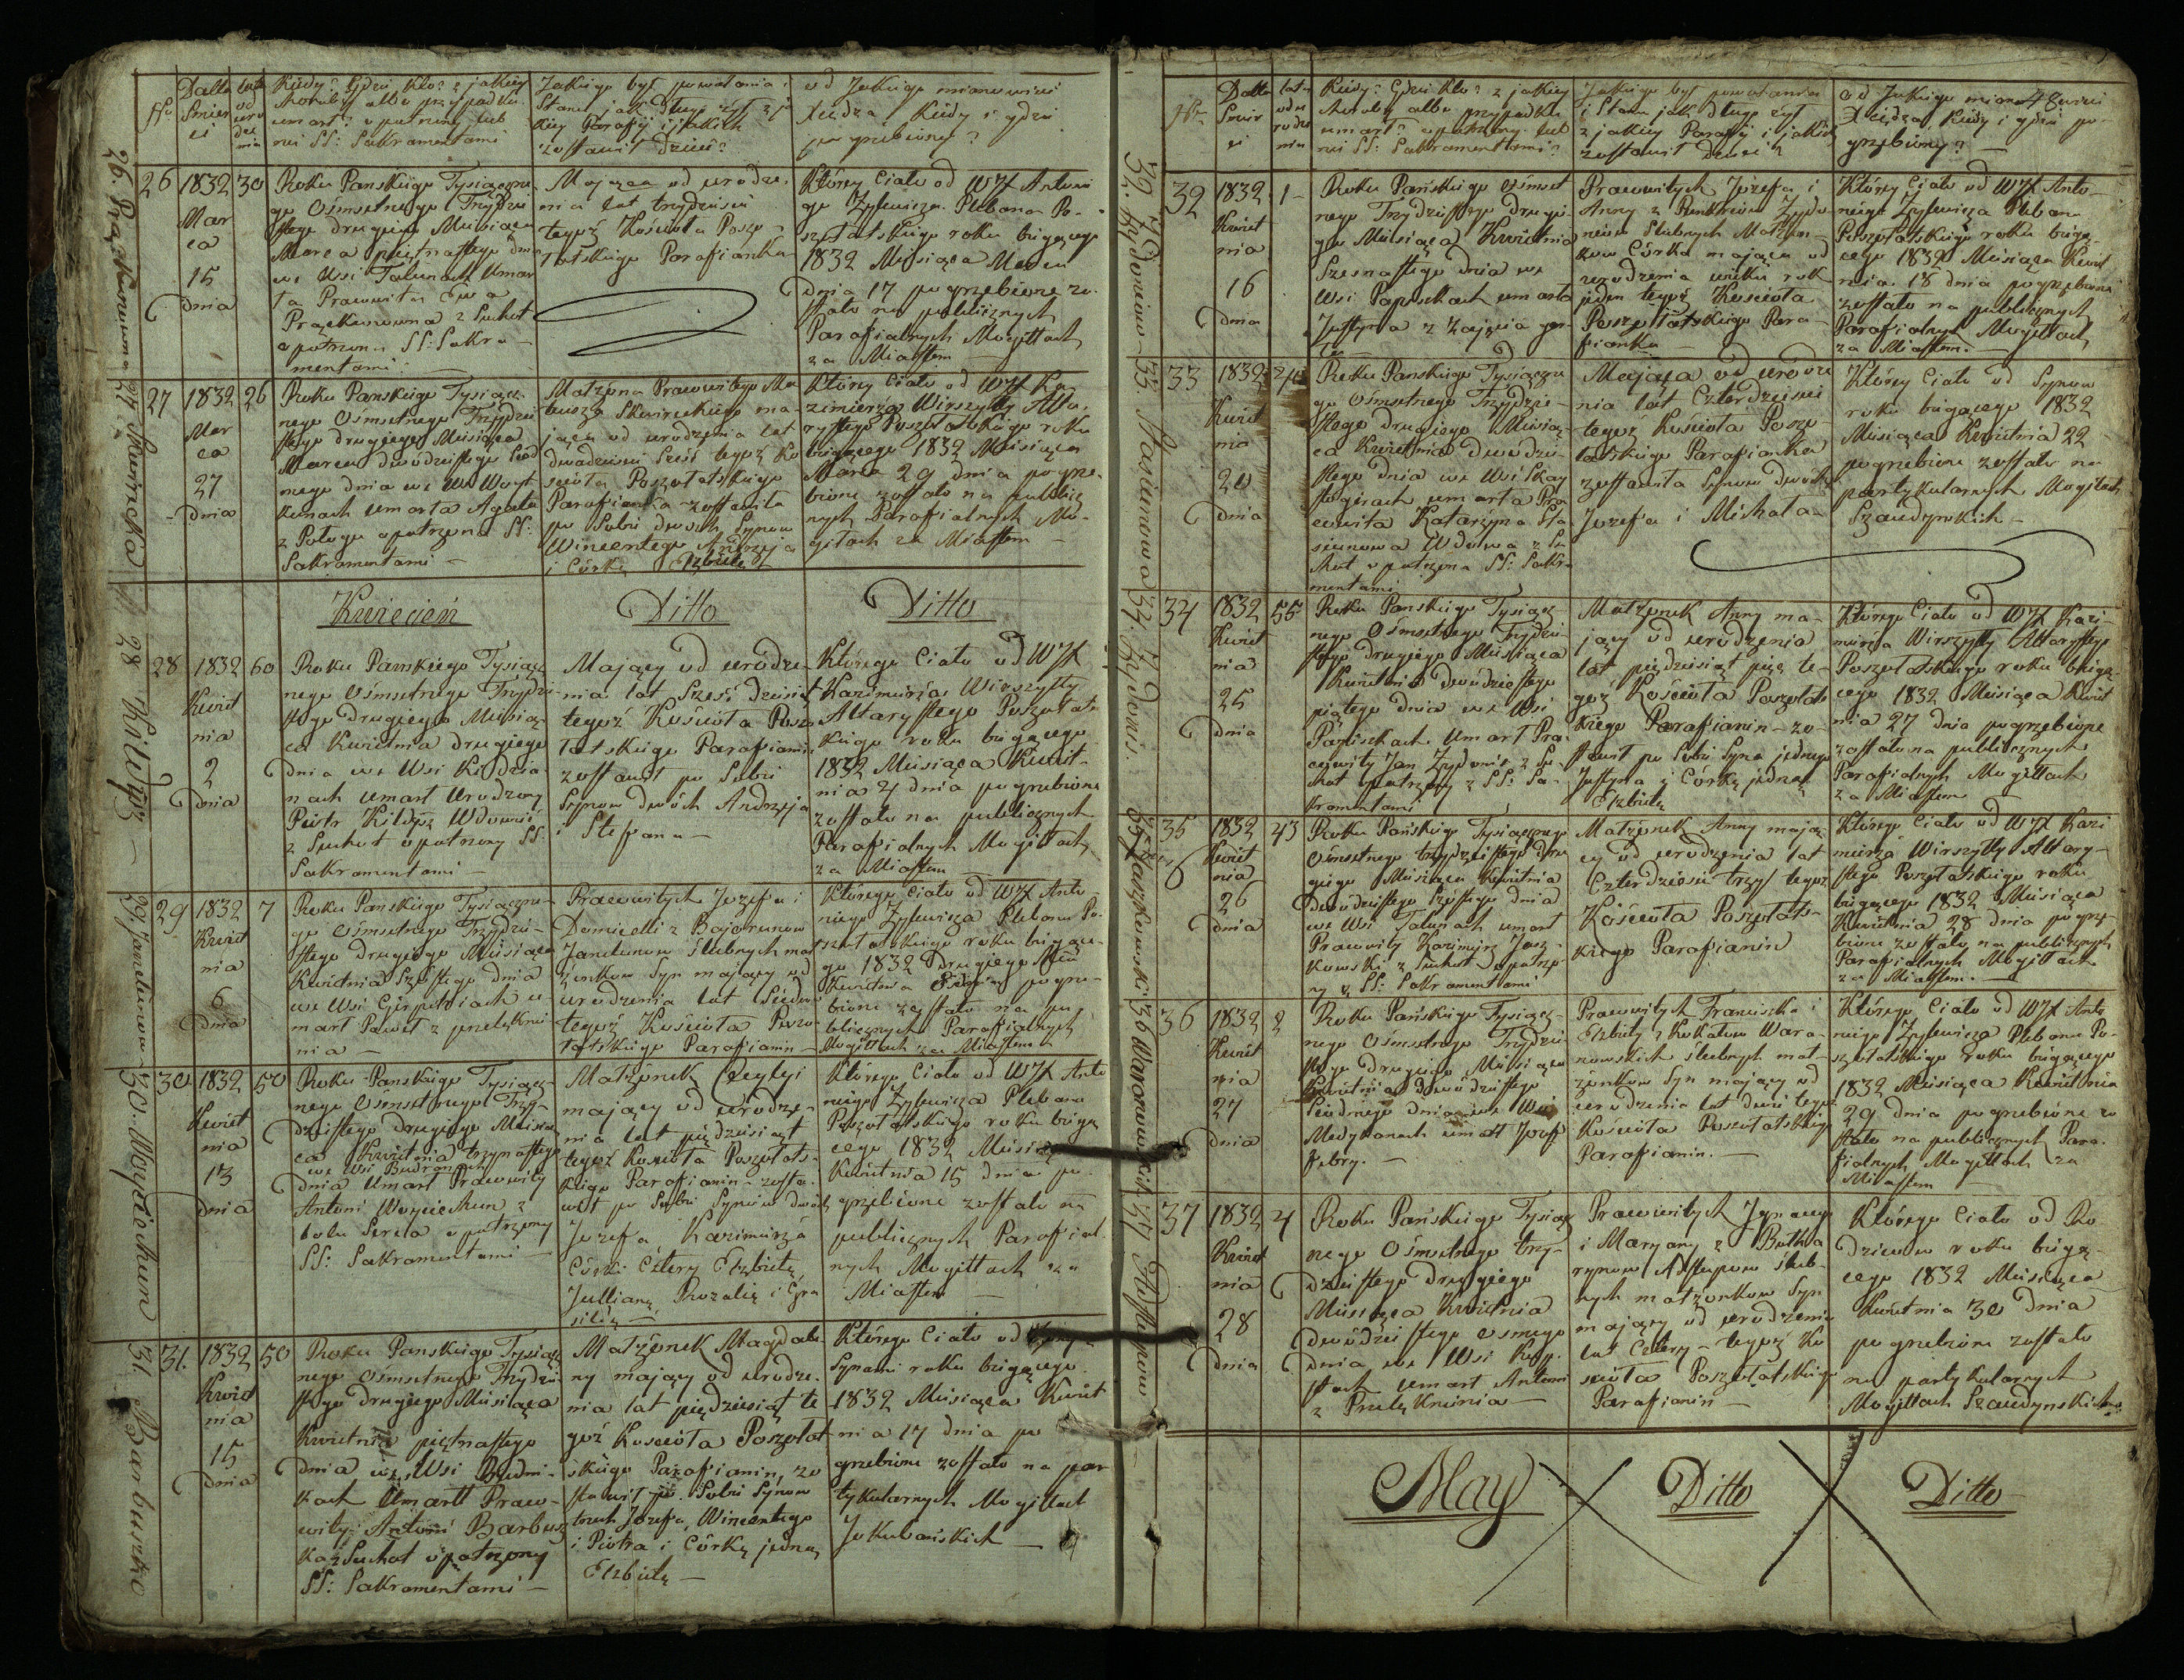 Nro
Datta Śmier ci
lata od uro dze nia
Kiedy? Gdzie kto? z jakiey
choroby albo przypadku
umarł? opatrzony lub
nie SS: Sakramentami
Jakiego był powołania i
Stanu jak długo żył z ja
kiey Parafij i jakich
zostawił dzieci?
od Jakiego mianowicie
Xiędza, Kiedy i gdzie
pogrzebiony?
26. Prączkunowna
26
1832
Mar
ca
15
dnia
30
Roku Panskiego Tysiączne
go Ośmsetnego Trzydzie
stego drugiego Miesiąca
Marca piętnastego dnia
we Wsi Talunach Umar
ta Prawowita Ewa
Prączkunowna z Suchot
opatrzona SS: Sakra
mentami
Mająca od urodze
nia lat trzydzieści
tegoż Kościoła Poszo
łatskiego Parafianka
Którey Ciało od WJX Antoni
go Zylewicza Plebana Po
szołatskiego roku bieżącego
1832 Miesiąca Marca
dnia 17 pogrzebione zo
stało na publicznych
Parafialnych Mogiłłach
za Miastem
27 Skwirecka
27
1832
Mar
ca
27
dnia
26
Roku Panskiego Tysiącz
nego Ośmsetnego Trzydzie
stego drugiego Miesiąca
Marca dwódziestego Siód
mego dnia we Wsi Woyt
kunach umarła Agata
z Połogu opatrzona SS:
Sakramentami
Małżona Prawowitego Ma
teusza Skwireckiego ma
jąca od urodzenia lat
dwadzieścia Sześć tegoż Ko
ścioła Poszołatskiego
Parafianka zostawiła
po Sobie dwóch Synow
Wincentego Andrzeja
i Córkę Elżbietę
Którey Ciało od WJX Ka
zimierza Wirszyłły Alta
rystego Poszołatskiego roku
bieżącego 1832 Miesiąca
Marca 29 dnia pogrze
bione zostało na publicz
nych Parafialnych Mo
giłach za Miastem
Kwiecień
Ditto
Ditto
28 Kildysz
28
1832
Kwiet
nia
2
dnia
60
Roku Panskiego Tysiącz
nego Ośmsetnego Trzydzie
stego drugiego Miesiąc
ca Kwietnia drugiego
dnia we Wsi Kidzia
nach umarł Urodzony
Piotr Kildysz Wdowiec
z Suchot opatrzony SS.
Sakramentami
Mający od urodze
nia lat Sześć dziesiąt
tegoż Kościoła Poszo
łatskiego Parafianin
zostawił po Sobie
Synow dwóch Andrzeja
i Stefana
Którego Ciało od WJX
Kazimierza Wirszyłły
Altarystego Poszołats
kiego roku bieżącego
1832 Miesiąca Kwiet
nia 4 dnia pogrzebione
zostało na publicznych
Parafialnych Mogiłłach
za Miastem
29 Janelunow
29
1832
Kwiet
nia
6
dnia
7
Roku Panskiego Tysiączne
go Ośmsetnego Trzydzie
stego drugiego Miesiąca
Kwietnia Szóstego dnia
we Wsi u
marł Paweł z przelęknie
nia
Prawowitych Jozefa i
Domicelli z Bajorunow
Janelunow ślubnych mał
żonkow Syn mający od
urodzenia lat Siedm
tegoż Kościoła Poszo
łatskiego Parafianin
Którego Ciało od WJX Anto
niego Zylewicza Plebana Po
szołatskiego roku bieżące
go 1832 Drugiego
Kwietnia pogrze
bione zostało na pu
blicznych Parafialnych
Mogiłłach za Miastem
30. Woyciechun
30
1832
Kwiet
nia
13
dnia
50
Roku Panskiego Tysiącz
nego Ośmsetnego Trzy
dziestego drugiego Miesią
ca Kwietnia trzynastego
we Wsi
dnia Umarł Prawowity
Antoni Woyciechun z
bolu Serca opatrzony
SS: Sakramentami
Małżonek Cecylyi
mający od urodze
nia lat pięćdziesiąt
tegoż Kościoła Poszołats
kiego Parafianin zosta
wił po Sobie Synów dwóch
Jozefa Kazimierza
Córki Cztery Elżbietę
Jullianę, Rozalię i
Którego Ciało od WJX Anto
niego Zylewicza Plebana
Poszołatskiego roku bieżą
cego 1832 Miesiąca
Kwietnia 15 dnia po
grzebione zostało na
publicznych Parafial
nych Mogiłłach za
Miastem
31 Barbuszko
31.
1832
Kwiet
nia
15
dnia
50
Roku Panskiego Tysiącz
nego Ośmsetnego Trzydzie
stego drugiego Miesiąca
Kwietnia piętnastego
dnia we Wsi Budmi
kach Umarł Prawo
wity Antoni Barbusz
ka z Suchot opatrzony
SS: Sakramentami
Małżonek Magdale
ny mający od urodze
nia lat pięćdziesiąt te
goż Kościoła Poszołat
skiego Parafianin, zo
stawił po Sobie Synow
trzech Jozefa, Wincentego
i Piotra i Córkę jedną
Elżbietę
Którego Ciało od
Synami roku bieżącego
1832 Miesiąca Kwiet
nia 17 dnia po
grzebione zostało na par
tykularnych Mogiłłach
Jakubańskich
48
Nro
Datta Śmier ci
lata od u rodze nia
Kiedy? Gdzie Kto? z jakiey
choroby albo przypadku
umarł? opatrzony lub
nie SS: Sakramentami?
Jakiego był powołania
i Stanu jak długo żył
z jakiey Parafij i jakich
zostawił Dzieci?
od Jakiego mianowicie
Xiędza, Kiedy i gdzie po
grzebiony?
32. Zydoniow
32
1832
Kwiet
nia
16
dnia
1
Roku Pańskiego Ośmset
nego Trzydziestego drugie
go Miesiąca Kwietnia
Szesnastego dnia we
Wsi Papiszkach umarła
Justyna z Zajęcia gar
ła
Prawowitych Józefa i
Anny z Zydo
niow ślubnych Małżon
kow Córka mająca od
urodzenia wieku rok
jeden tegoż Kościoła
Poszołatskiego Para
fianka
Którey Ciało od WJX Anto
niego Zylewicza Plebana
Poszołatskiego roku bieżą
cego 1832 Miesiąca Kwiet
nia 18 dnia pogrzebione
zostało na publicznych
Parafialnych Mogiłłach
za Miastem.
33. Stasiunowa
33
1832
Kwiet
nia
20
dnia
40
Roku Panskiego Tysiączne
go Ośmsetnego Trzydzie
stego drugiego Miesią
ca Kwietnia dwódzie
stego dnia we Wsi Skay
stogirach umarła Pra
wowita Katarzyna Sta
siunowa Wdowa z Su
chot opatrzona SS: Sakra
mentami
Mająca od urodze
nia lat Czterdzieści
tegoż Kościoła Poszo
łatskiego Parafianka
zostawiła Synow dwóch
Jozefa i Michała
Którey Ciało od Synow
roku bieżącego 1832
Miesiąca Kwietnia 22
pogrzebione zostało na
partykularnych Mogiłach
Szawdynskich
34. Zydonis
34
1832
Kwiet
nia
25
dnia
55
Roku Panskiego Tysiącz
nego Ośmsetnego Trzydzie
stego drugiego Miesiąca
Kwietnia dwódziestego
piątego dnia we Wsi
Papiszkach umarł Pra
wowity Jan Zydonis z Su
chot opatrzony z SS: Sa
kramentami
Małżonek Anny ma
jący od urodzenia
lat pięćdziesiąt pięć te
goż Kościoła Poszołats
kiego Parafianin zo
stawił po Sobie Syna jednego
Justyna i Córkę jedną
Elżbietę
Którego Ciało od WJX Kazi
mierza Wirszyłły Altarystego
Poszołatskiego roku bieżą
cego 1832 Miesiąca Kwiet
nia 27 dnia pogrzebione
zostało na publicznych
Parafialnych Mogiłłach
za Miastem
35 Jaszkowski
35
1832
Kwiet
nia
26
dnia
43
Roku Pańskiego Tysiącznego
Ośmsetnego trzydziestego dru
giego Miesiąca Kwietnia
dwódziestego szóstego dnia
we Wsi Talunach umarł
Prawowity Kazimierz Jasz
kowski z Suchot opatrzo
ny z SS: Sakramentami
Małżonek Anny mają
cy od urodzenia lat
Czterdzieści trzy tegoż
Kościoła Poszołats
kiego Parafianin
Którego Ciało od WJX Kazi
mierza Wirszyłły Altary
stego Poszołatskiego roku
bieżącego 1832 Miesiąca
Kwietnia 28 dnia pogrze
bione zostało na publicznych
Parafialnych Mogiłłach
za Miastem.
36 Waranowskich
36
1832
Kwiet
nia
27
dnia
2
Roku Pańskiego Tysiącz
nego Ośmsetnego Trzydzie
stego drugiego Miesiąca
Kwietnia dwódziestego
Siódmego dnia we Wsi
Medykanach umarł Jozef
febry.
Prawowitych Franciszka i
Elżbiety z Wara
nowskich ślubnych mał
żonkow Syn mający od
urodzenia lat dwie tegoż
Kościoła Poszołatskiego
Parafianin.
Którego Ciało od WJX Anto
niego Zylewicza Plebana Po
szołatskiego roku bieżącego
1832 Miesiąca Kwietnia
29 dnia pogrzebione zo
stało na publicznych Para
fialnych Mogiłłach za
Miastem
37 Astłupow
37
1832
Kwiet
nia
28
dnia
4
Roku Pańskiego Tysiącz
nego Ośmsetnego trzy
dziestego drugiego
Miesiąca Kwietnia
dwódziestego Osmego
dnia we Wsi
umarł Antoni
z Przelęknienia
Prawowitych Ignacego
i Maryany z Butka
rynow Astłupow ślub
nych małżonkow Syn
mający od urodzenia
lat Cztery tegoż Ko
ścioła Poszołatskiego
Parafianin
Którego Ciało od Ro
dziców roku bieżą
cego 1832 Miesiąca
Kwietnia 30 dnia
pogrzebione zostało
na partykularnych
Mogiłłach Szawdynskich
May
Ditto
Ditto